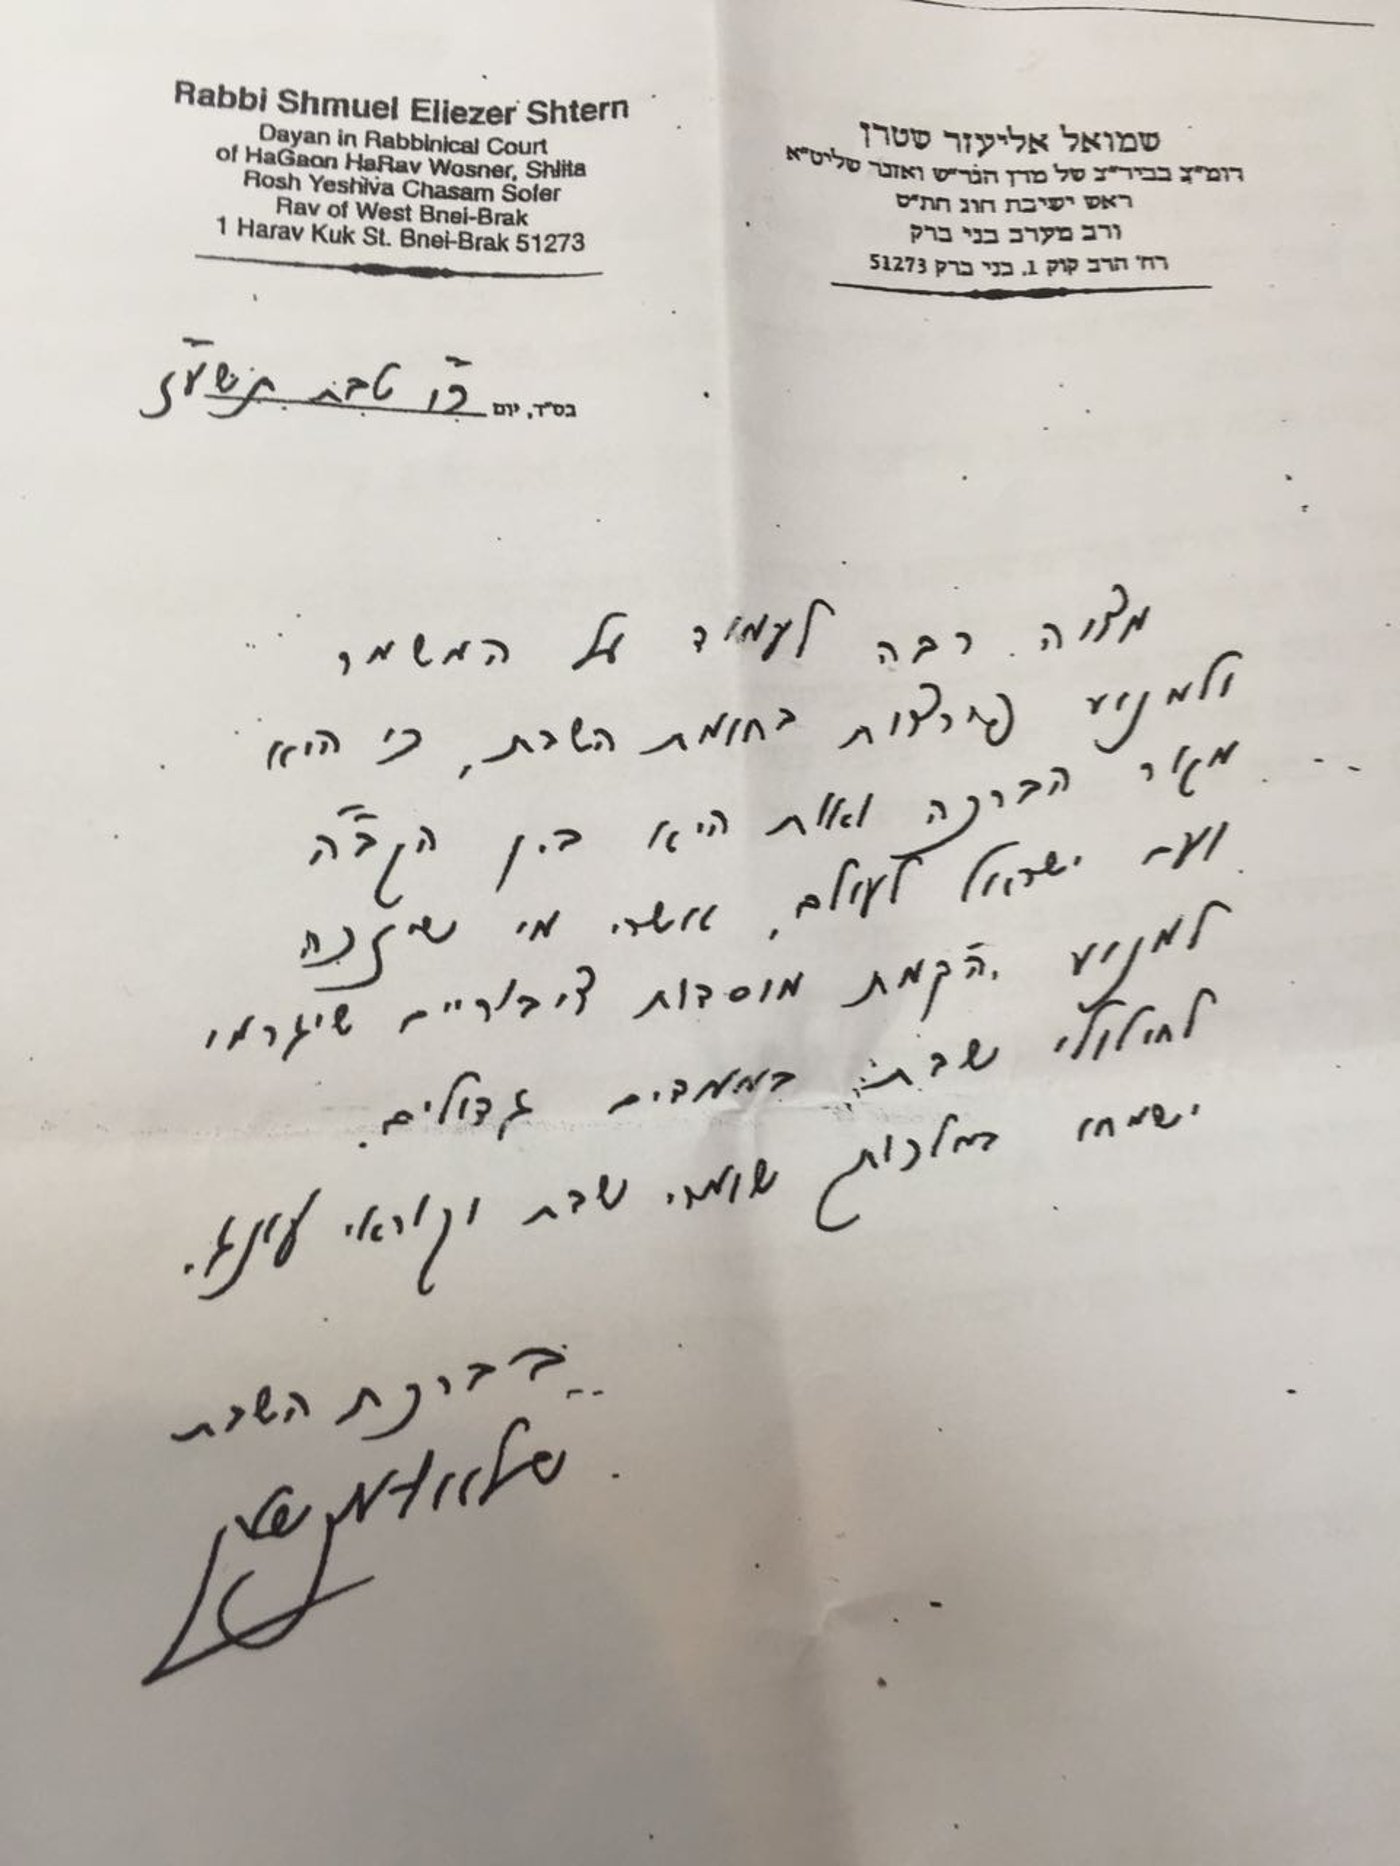 Rabbi Shmuel Eliezer Shtern
Dayan in Rabbinical Court
of HaGaon HaRav Wosner, Shlita
Rosh Yeshiva Chasam Sofer
Rav of West Bnei-Brak
1 Harav Kuk St. Bnei-Brak 51273
שמואל אליעזר שטרן
דומ"צ בביד"צ של מרן הגר"ש ואזנר שליט"א
ראש ישיבת חוג חת"ס
ורב מערב בני ברק
רח' הרב קוק 1, בני ברק 51273
בס"ד, יום כ"ו טבת תשע"ז
מצוה רבה לעמוד על המשמר
ולמנוע פרצות בחומת השבת, כי היא
מקור הברכה ואות היא בין הקב"ה
ועם ישראל לעולם. אשרי מי שיזכה
למנוע הקמת מוסדות ציבוריים שיגרמו
לחילולי שבת בממדים גדולים.
ישמחו במלכותך שומרי שבת וקוראי עונג.
בברכת השבת
שטרן